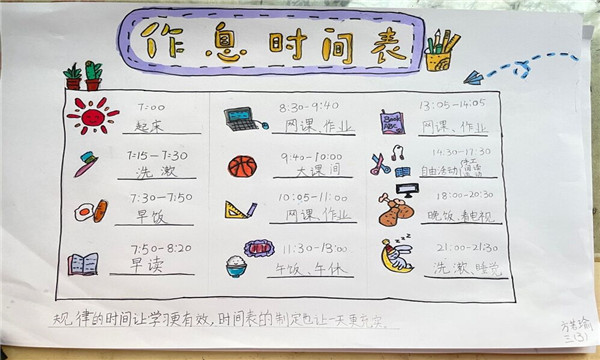 作息时间表
7:00
起床
7:15-7:30
洗漱
7:30-7:50
早饭
7:50-8:20
早读
8:30-9:40
网课、作业
9:40-10:00
大课间
10:05-11:00
网课、作业
11:30-13:00
午饭、午休
Book
ABC
13:05-14:05
网课、作业
14:30-17:30
自由活动
18:00-20:30
晚饭、看电视
21:00-21:30
洗漱、睡觉
规律的时间让学习更有效,时间表的制定也让一天更充实。
三(3)